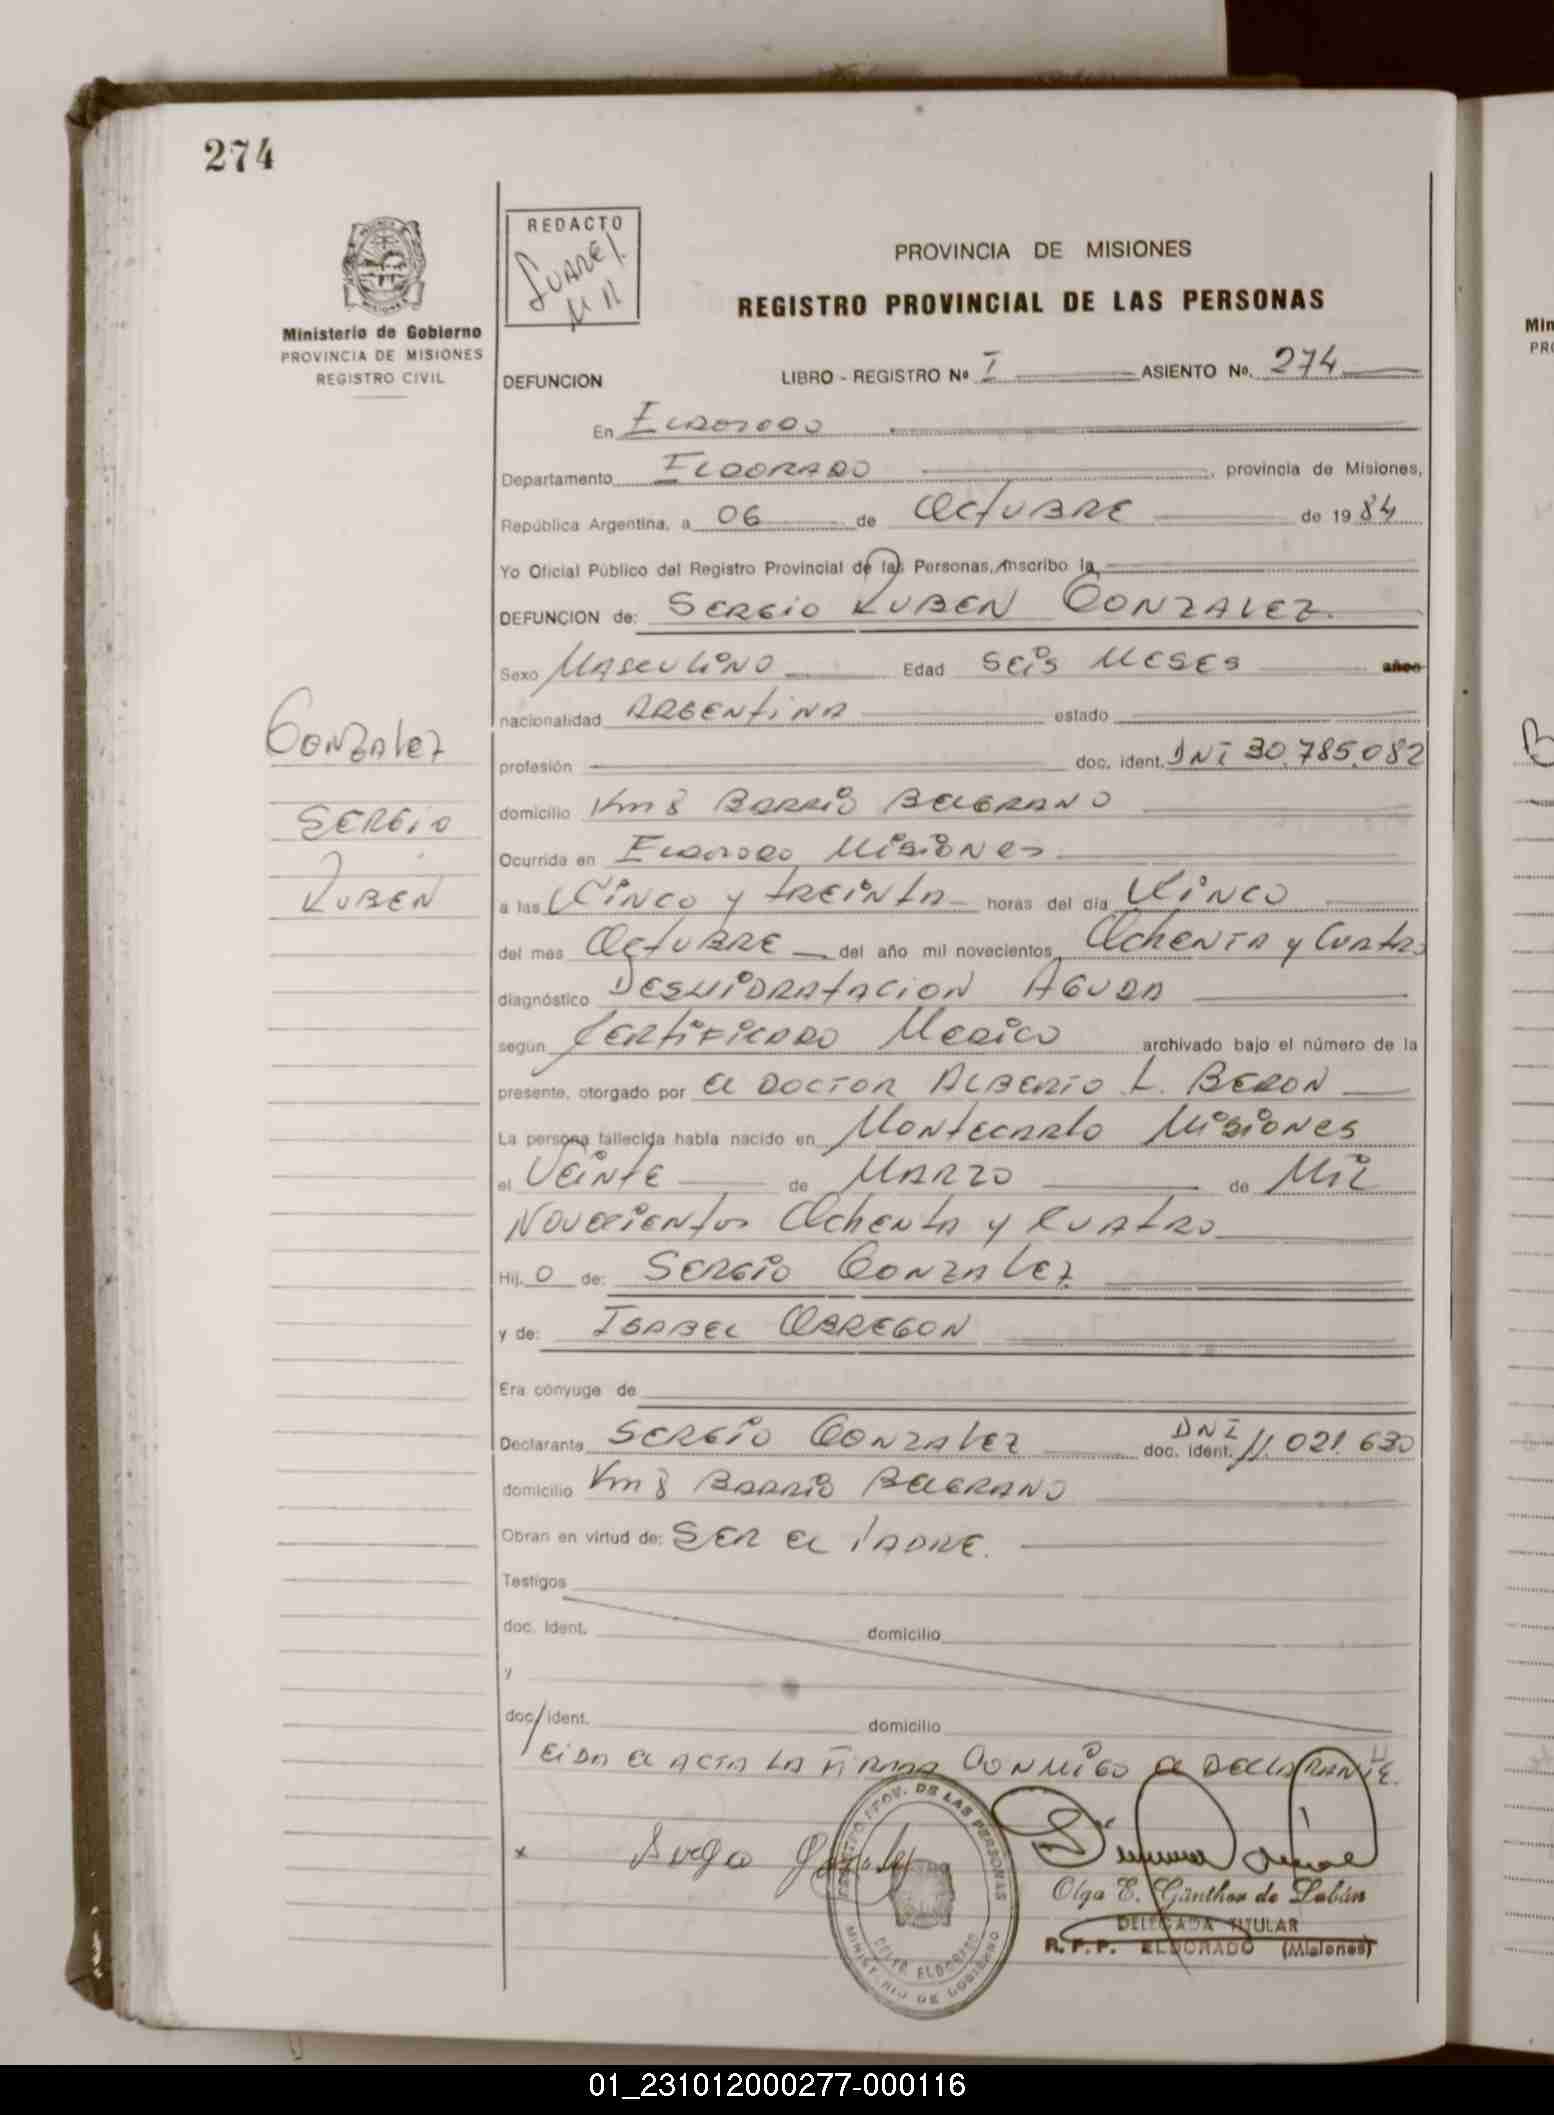 274
REDACTO
Suarez
M R
PROVINCIA DE MISIONES
REGISTRO PROVINCIAL DE LAS PERSONAS
Ministerio de Gobierno
PROVINCIA DE MISIONES
REGISTRO CIVIL
DEFUNCION LIBRO - REGISTRO Nº I ASIENTO No. 274
En Eldorado
Departamento ELDORADO, provincia de Misiones,
República Argentina, a 06 de Octubre de 1984
Yo Oficial Público del Registro Provincial de las Personas, inscribo la
DEFUNCION de: Sergio Ruben Gonzalez
Sexo Masculino Edad Seis Meses años
nacionalidad Argentina estado
profesión doc. ident. DNI 30.785.082
domicilio Km 8 Barrio Belgrano
Ocurrida en Eldorado Misiones
a las Cinco y treinta horas del día Cinco
del mes Octubre del año mil novecientos Ochenta y Cuatro
diagnóstico Deshidratacion Aguda
según Certificado Medico archivado bajo el número de la
presente, otorgado por el Doctor Alberto L. Beron
La persona fallecida había nacido en Montecarlo Misiones
el Veinte de Marzo de Mil
Novecientos Ochenta y Cuatro
Hij o de: Sergio Gonzalez
y de: Isabel Obregon
Era cónyuge de
Declarante Sergio Gonzalez doc. ident. DNI 11.021.630
domicilio Km 8 Barrio Belgrano
Obran en virtud de: Ser el Padre.
Testigos
doc. ident. domicilio
y
doc. ident. domicilio
Leida el acta la firma Conmigo el Declarante.
Gonzalez
Sergio
Ruben
x Sergio Gonzalez
REGISTRO PROV. DE LAS PERSONAS
MINISTERIO DE GOBIERNO
ELDORADO
Olga E. Günther de Labán
DELEGADA TITULAR
R.P.P. ELDORADO (Misiones)
Min
01_231012000277-000116